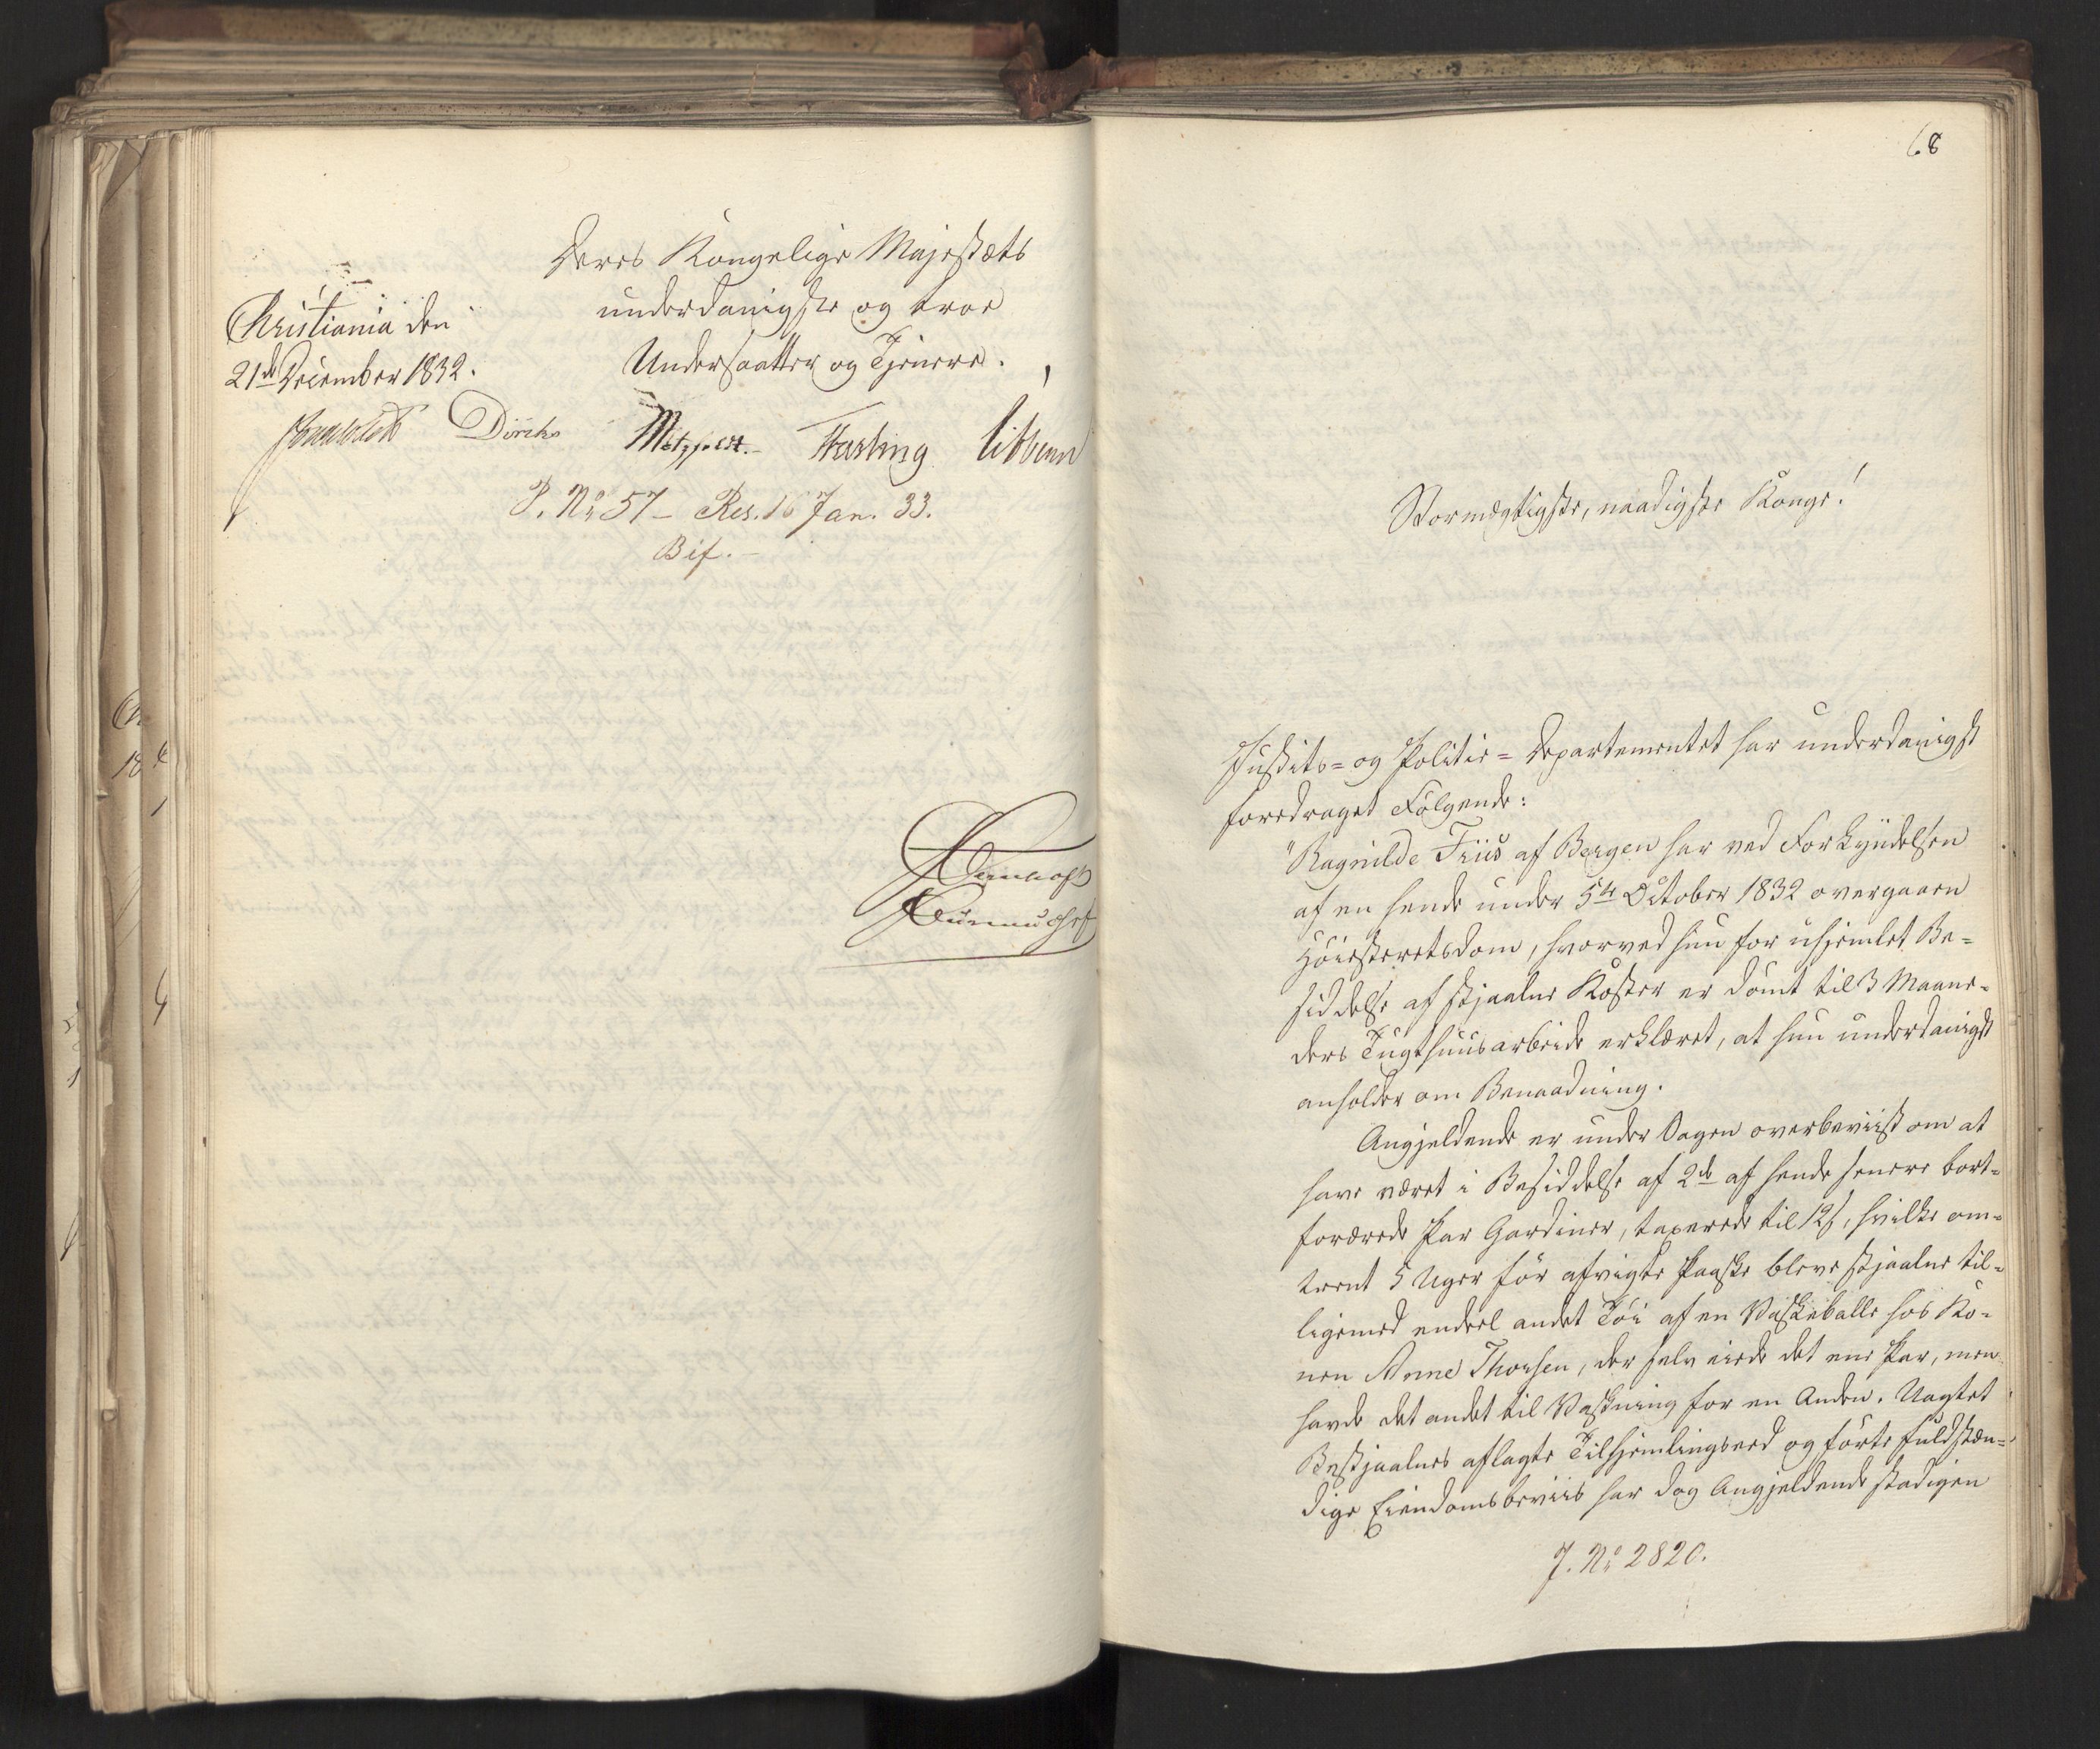 Deres Kongelige Majestæts
underdanigste og troe
Undersaatter og Tjenere.
Christiania den
21de December 1832.
Diriks Motzfeldt. Fasting
P. No 57 – Res. 16 Jan. 33.
Bif. –
68
Stormægtigste, naadigste Konge!
Justits- og Politie-Departementet har underdanigst
foredraget Følgende:
"Ragnilde Friis af Bergen har ved Forkyndelsen
af en hende under 5te October 1832 overgaaen
Høiesteretsdom, hvorved hun for uhjemlet Be-
siddelse af stjaalne Koster er dømt til 3 Maane-
ders Tugthuusarbeide erklæret, at hun underdanigst
anholder om Benaadning.
Angjeldende er under Sagen overbeviist om at
have været i Besiddelse af 2de af hende senere bort-
forærede Par Gardiner, taxerede til 12 ß, hvilke om-
trent 5 Uger før afvigte Paaske bleve stjaalne til-
ligemed endeel andet Tøi af en Vaskeballe hos Ko-
nen Anne Thorsen, der selv eiede det ene Par, men
havde det andet til Vaskning for en Anden. Uagtet
Bestjaalnes aflagte Tilhjemlingseed og førte fuldstæn-
dige Eiendomsbeviis har dog Angjeldende stadigen
J. No 2820.